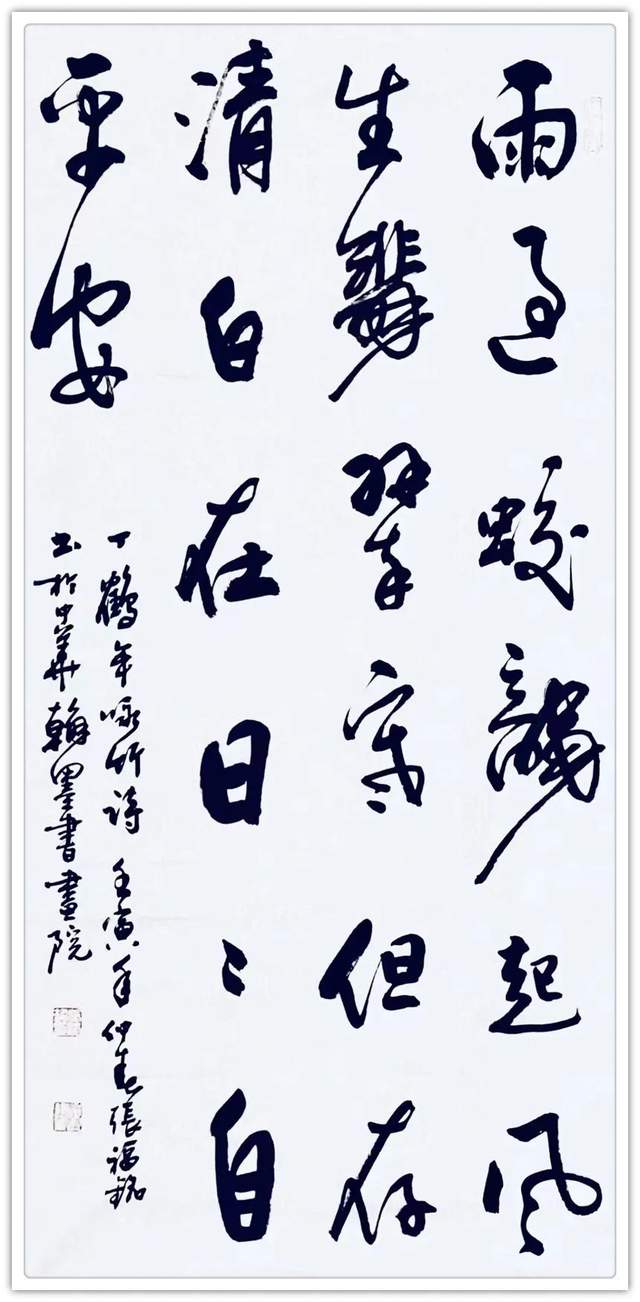 雨過蛟龍起風
生翡翠寒但存
清白在日々自
平安
丁鶴年咏竹詩 壬寅年仲春張福銘
书於中華翰墨書畫院